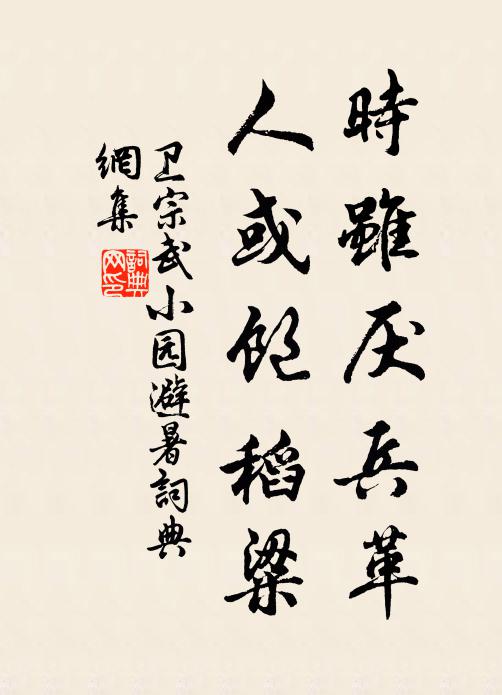 時雖厌兵革
人或飽稻粱
卫宗武小园避暑詞典
網集
詞典
网印